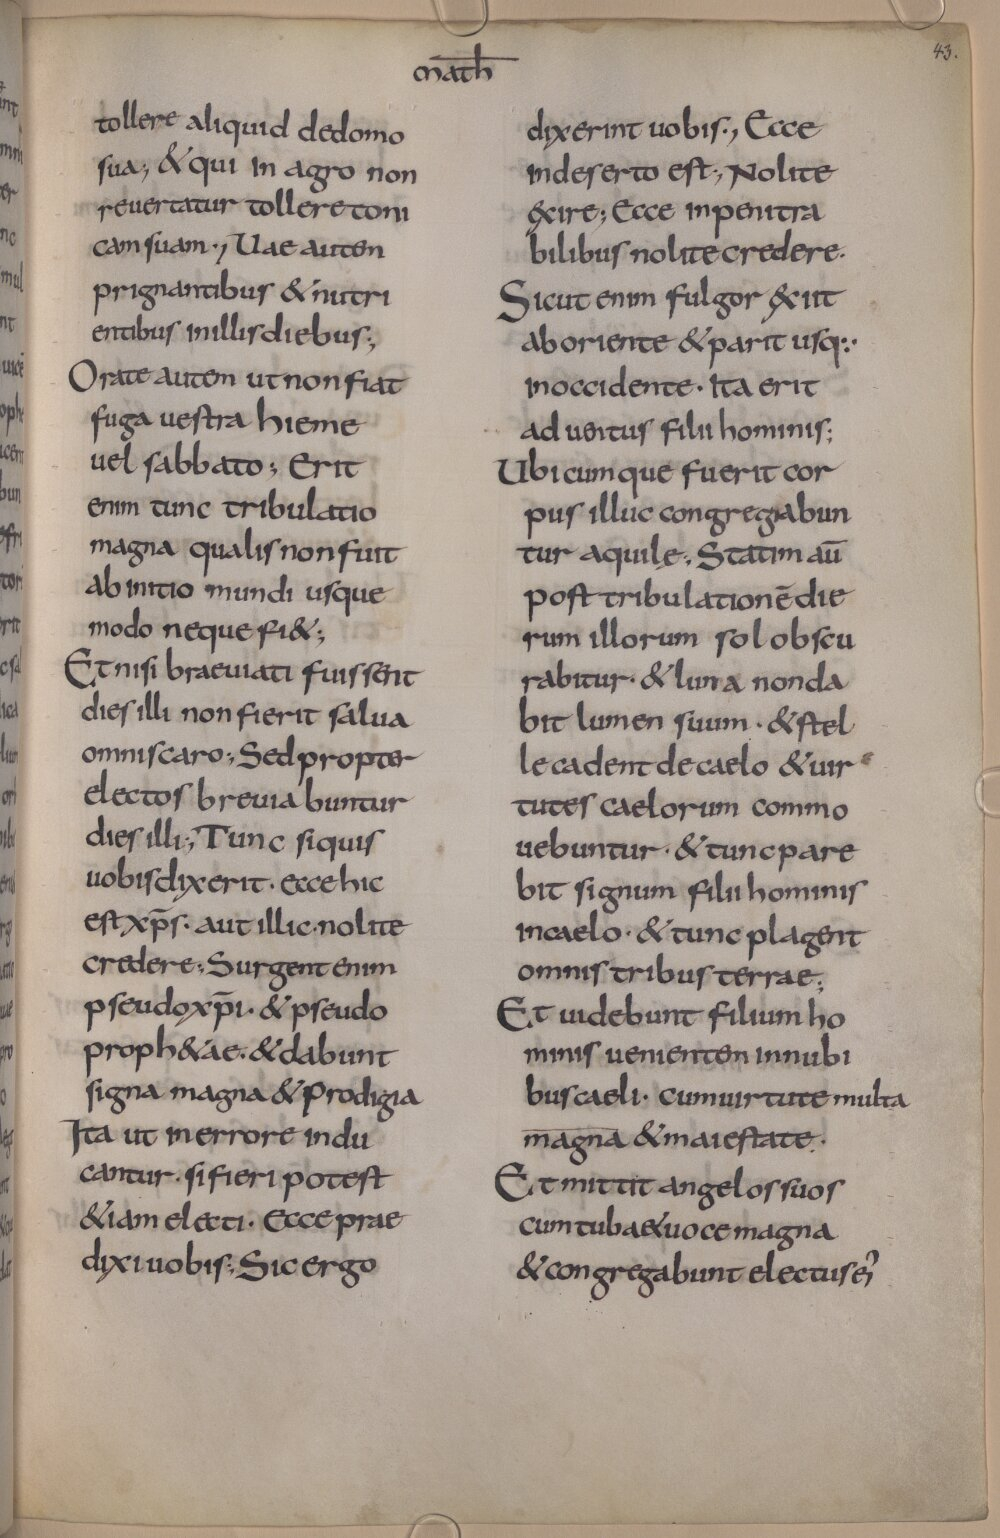 math
43.
tollere aliquid dedomo
sua; & qui in agro non
reuertatur tollere toni
cam suam·, Uae auten
prignantibus & nutri
entibus inillisdiebus;
Orate auten ut non fiat
fuga uestra hieme
uel sabbato; Erit
enim tunc tribulatio
magna qualis non fuit
ab initio mundi usque
modo neque fi&;
Et nisi braeuiati fuissent
dies illi non fierit salua
omnis caro; Sed propter
electos breuia buntur
dies illi; Tunc siquis
uobis dixerit· ecce hic
est xp̄s· aut illic· nolite
credere; Surgent enim
pseudoxp̄i· & pseudo
proph&ae· & dabunt
signa magna & Prodigia
Ita ut in errore indu
cantur· si fieri potest
&iam electi· Ecce prae
dixi uobis; Sic ergo
dixerint uobis·, Ecce
indeserto est; Nolite
exire; Ecce inpenitra
bilibus nolite credere·
Sicut enim fulgor exiit
ab oriente & parit usq:·
inoccidente· Ita erit
ad uentus filii hominis;
Ubi cumque fuerit cor
pus illuc congregabun
tur aquile; Statim aū
post tribulationē die
rum illorum sol obscu
rabitur· & luna non da
bit lumen suum· & stel
le cadent de caelo & uir
tutes caelorum commo
uebuntur· & tunc pare
bit signum filii hominis
incaelo· & tunc plagent
omnis tribus terrae;
Et uidebunt filium ho
minis uenienten innubi
bus caeli· cum uirtute multa
magna & maiestate·
Et mittit angelos suos
cum tuba & uoce magna
& congregabunt electus ei᾿